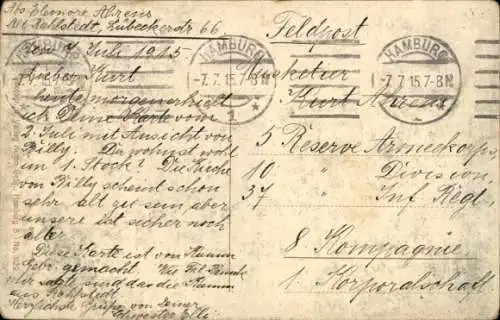 Eleonore Ahrens
Rahlstedt, Lübeckerstr 66
Den 7. Juli 1915
Lieber Kurt
heute morgen erhielt
ich Deine Karte vom
2. Juli mit Ansicht von
Billy. Du wohnst wohl
im 1. Stock? Die Kirche
von Billy scheint schon
sehr alt zu sein, aber
unsere ist sicher noch
älter.
Diese Karte ist von Hamm
Gebr. gemacht. Wie Frl
mir sagte sind das die Hamm
aus Rahlstedt.
Herzliche Grüße von Deiner
Schwester Elli.
Feldpost
HAMBURG
-7.7.15.7-8N.
1
HAMBURG
-7.7.15.7-8N.
Musketier
Kurt Ahrens
5 Reserve Armeekorps
10 " Division
37 " Inf. Regt.
8 Kompagnie
1. Korporalschaft